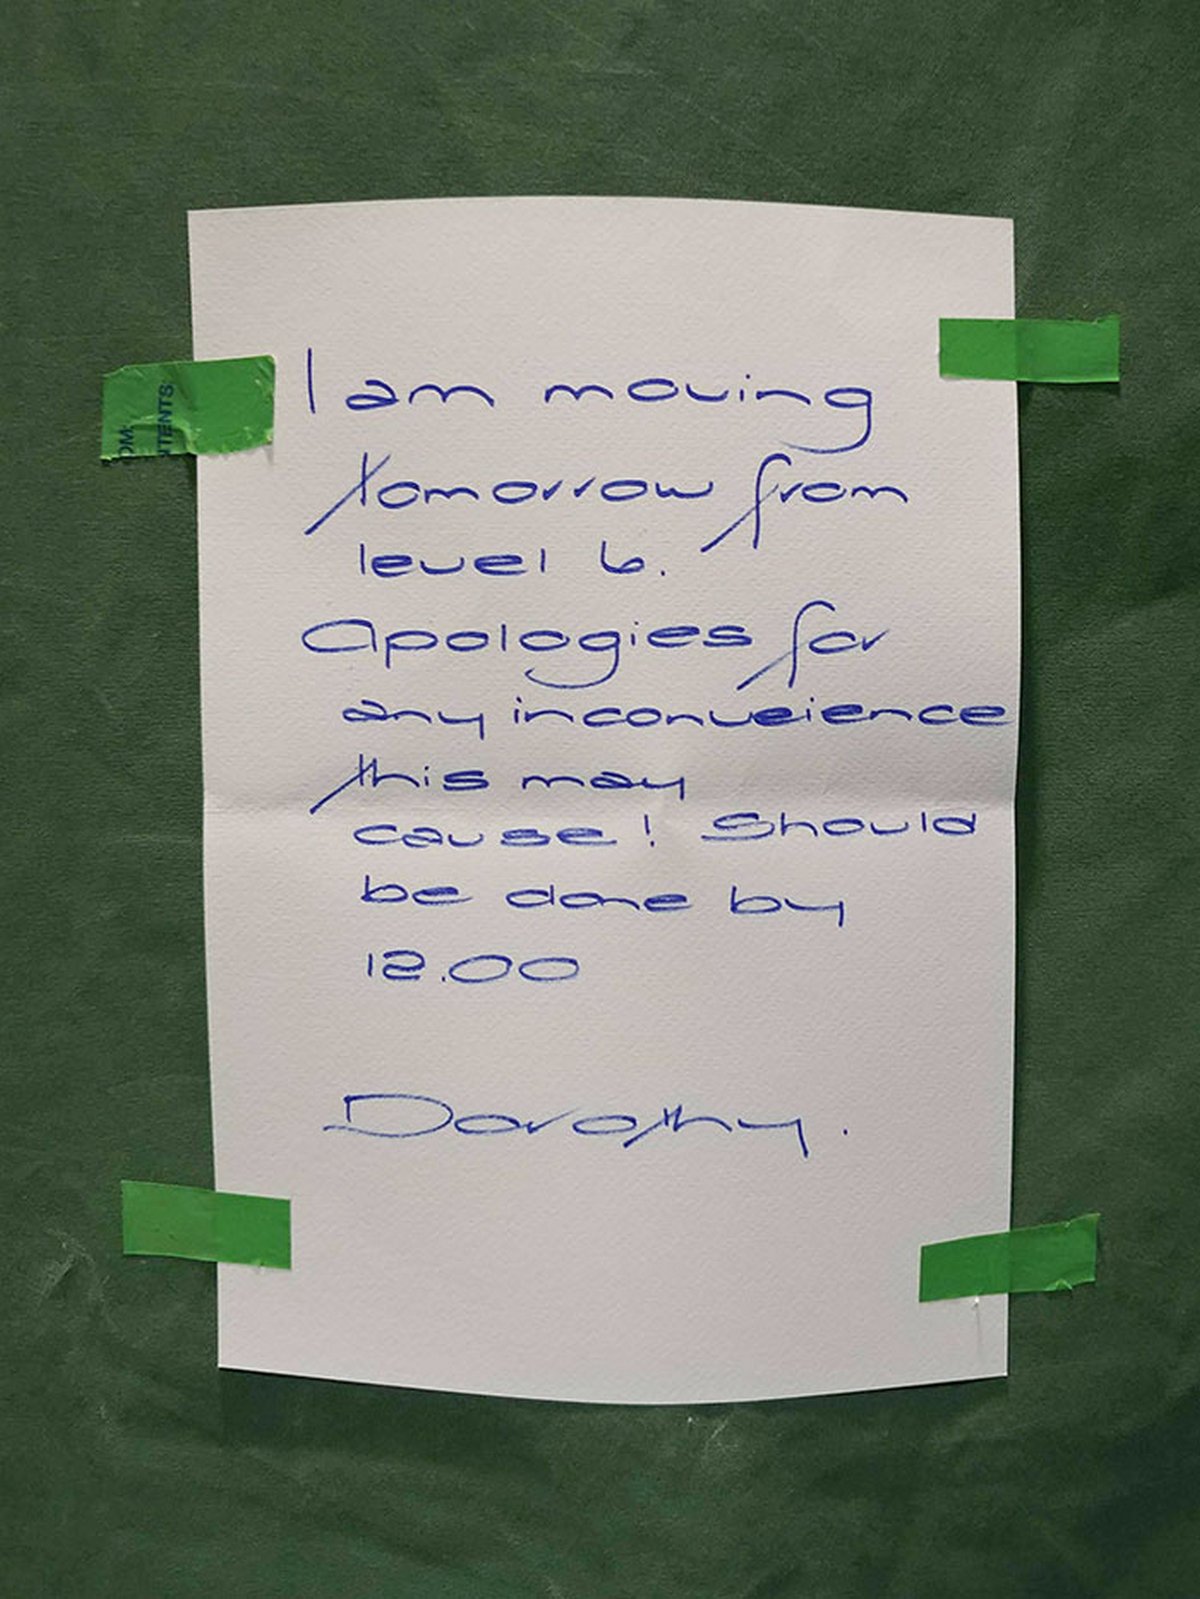 I am moving
tomorrow from
level 6.
Apologies for
any inconveience
this may
cause! Should
be done by
12.00
Dorothy.
OM:
NTENTS